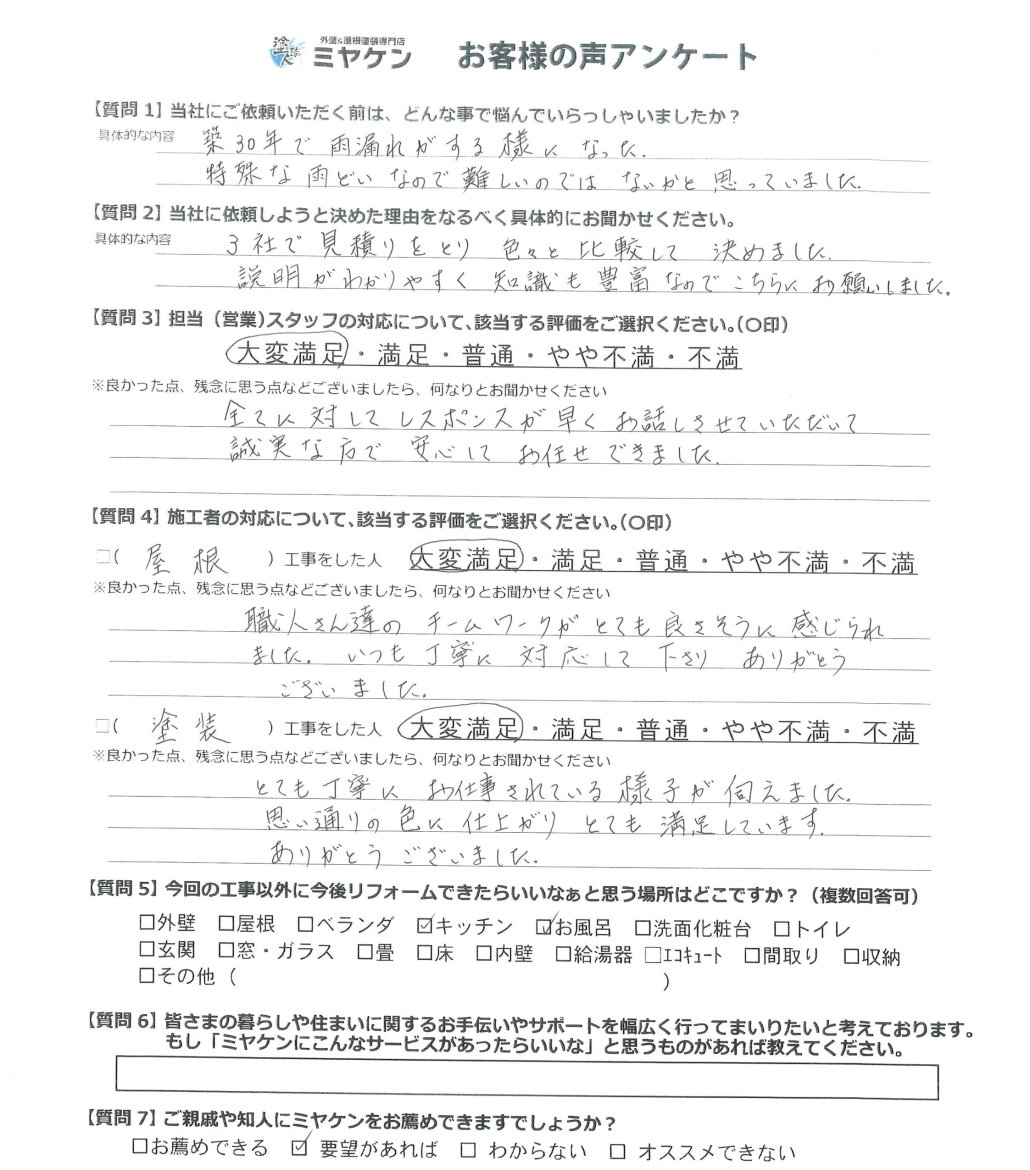 塗人 外壁&屋根塗装専門店
ミヤケン お客様の声アンケート
【質問 1】当社にご依頼いただく前は、どんな事で悩んでいらっしゃいましたか？
具体的な内容 築30年で雨漏れがする様になった.
特殊な雨どいなので難しいのではないかと思っていました.
【質問 2】当社に依頼しようと決めた理由をなるべく具体的にお聞かせください。
具体的な内容 3社で見積りをとり色々と比較して決めました.
説明がわかりやすく知識も豊富なのでこちらにお願いしました.
【質問 3】担当（営業)スタッフの対応について、該当する評価をご選択ください。（〇印）
大変満足・満足・普通・やや不満・不満
※良かった点、残念に思う点などございましたら、何なりとお聞かせください
全てに対してレスポンスが早くお話しさせていただいて
誠実な方で安心してお任せできました.
【質問 4】施工者の対応について、該当する評価をご選択ください。（〇印）
□( 屋根 ) 工事をした人 大変満足・満足・普通・やや不満・不満
※良かった点、残念に思う点などございましたら、何なりとお聞かせください
職人さん達のチームワークがとても良さそうに感じられ
ました. いつも丁寧に対応して下さり ありがとう
ございました.
□( 塗装 ) 工事をした人 大変満足・満足・普通・やや不満・不満
※良かった点、残念に思う点などございましたら、何なりとお聞かせください
とても丁寧にお仕事されている様子が伺えました.
思い通りの色に仕上がりとても満足しています.
ありがとうございました.
【質問 5】今回の工事以外に今後リフォームできたらいいなぁと思う場所はどこですか？（複数回答可）
□外壁 □屋根 □ベランダ ☑キッチン ☑お風呂 □洗面化粧台 □トイレ
□玄関 □窓・ガラス □畳 □床 □内壁 □給湯器 □ｴｺｷｭｰﾄ □間取り □収納
□その他（ ）
【質問 6】皆さまの暮らしや住まいに関するお手伝いやサポートを幅広く行ってまいりたいと考えております。
もし「ミヤケンにこんなサービスがあったらいいな」と思うものがあれば教えてください。
【質問 7】ご親戚や知人にミヤケンをお薦めできますでしょうか？
□お薦めできる ☑ 要望があれば □ わからない □ オススメできない